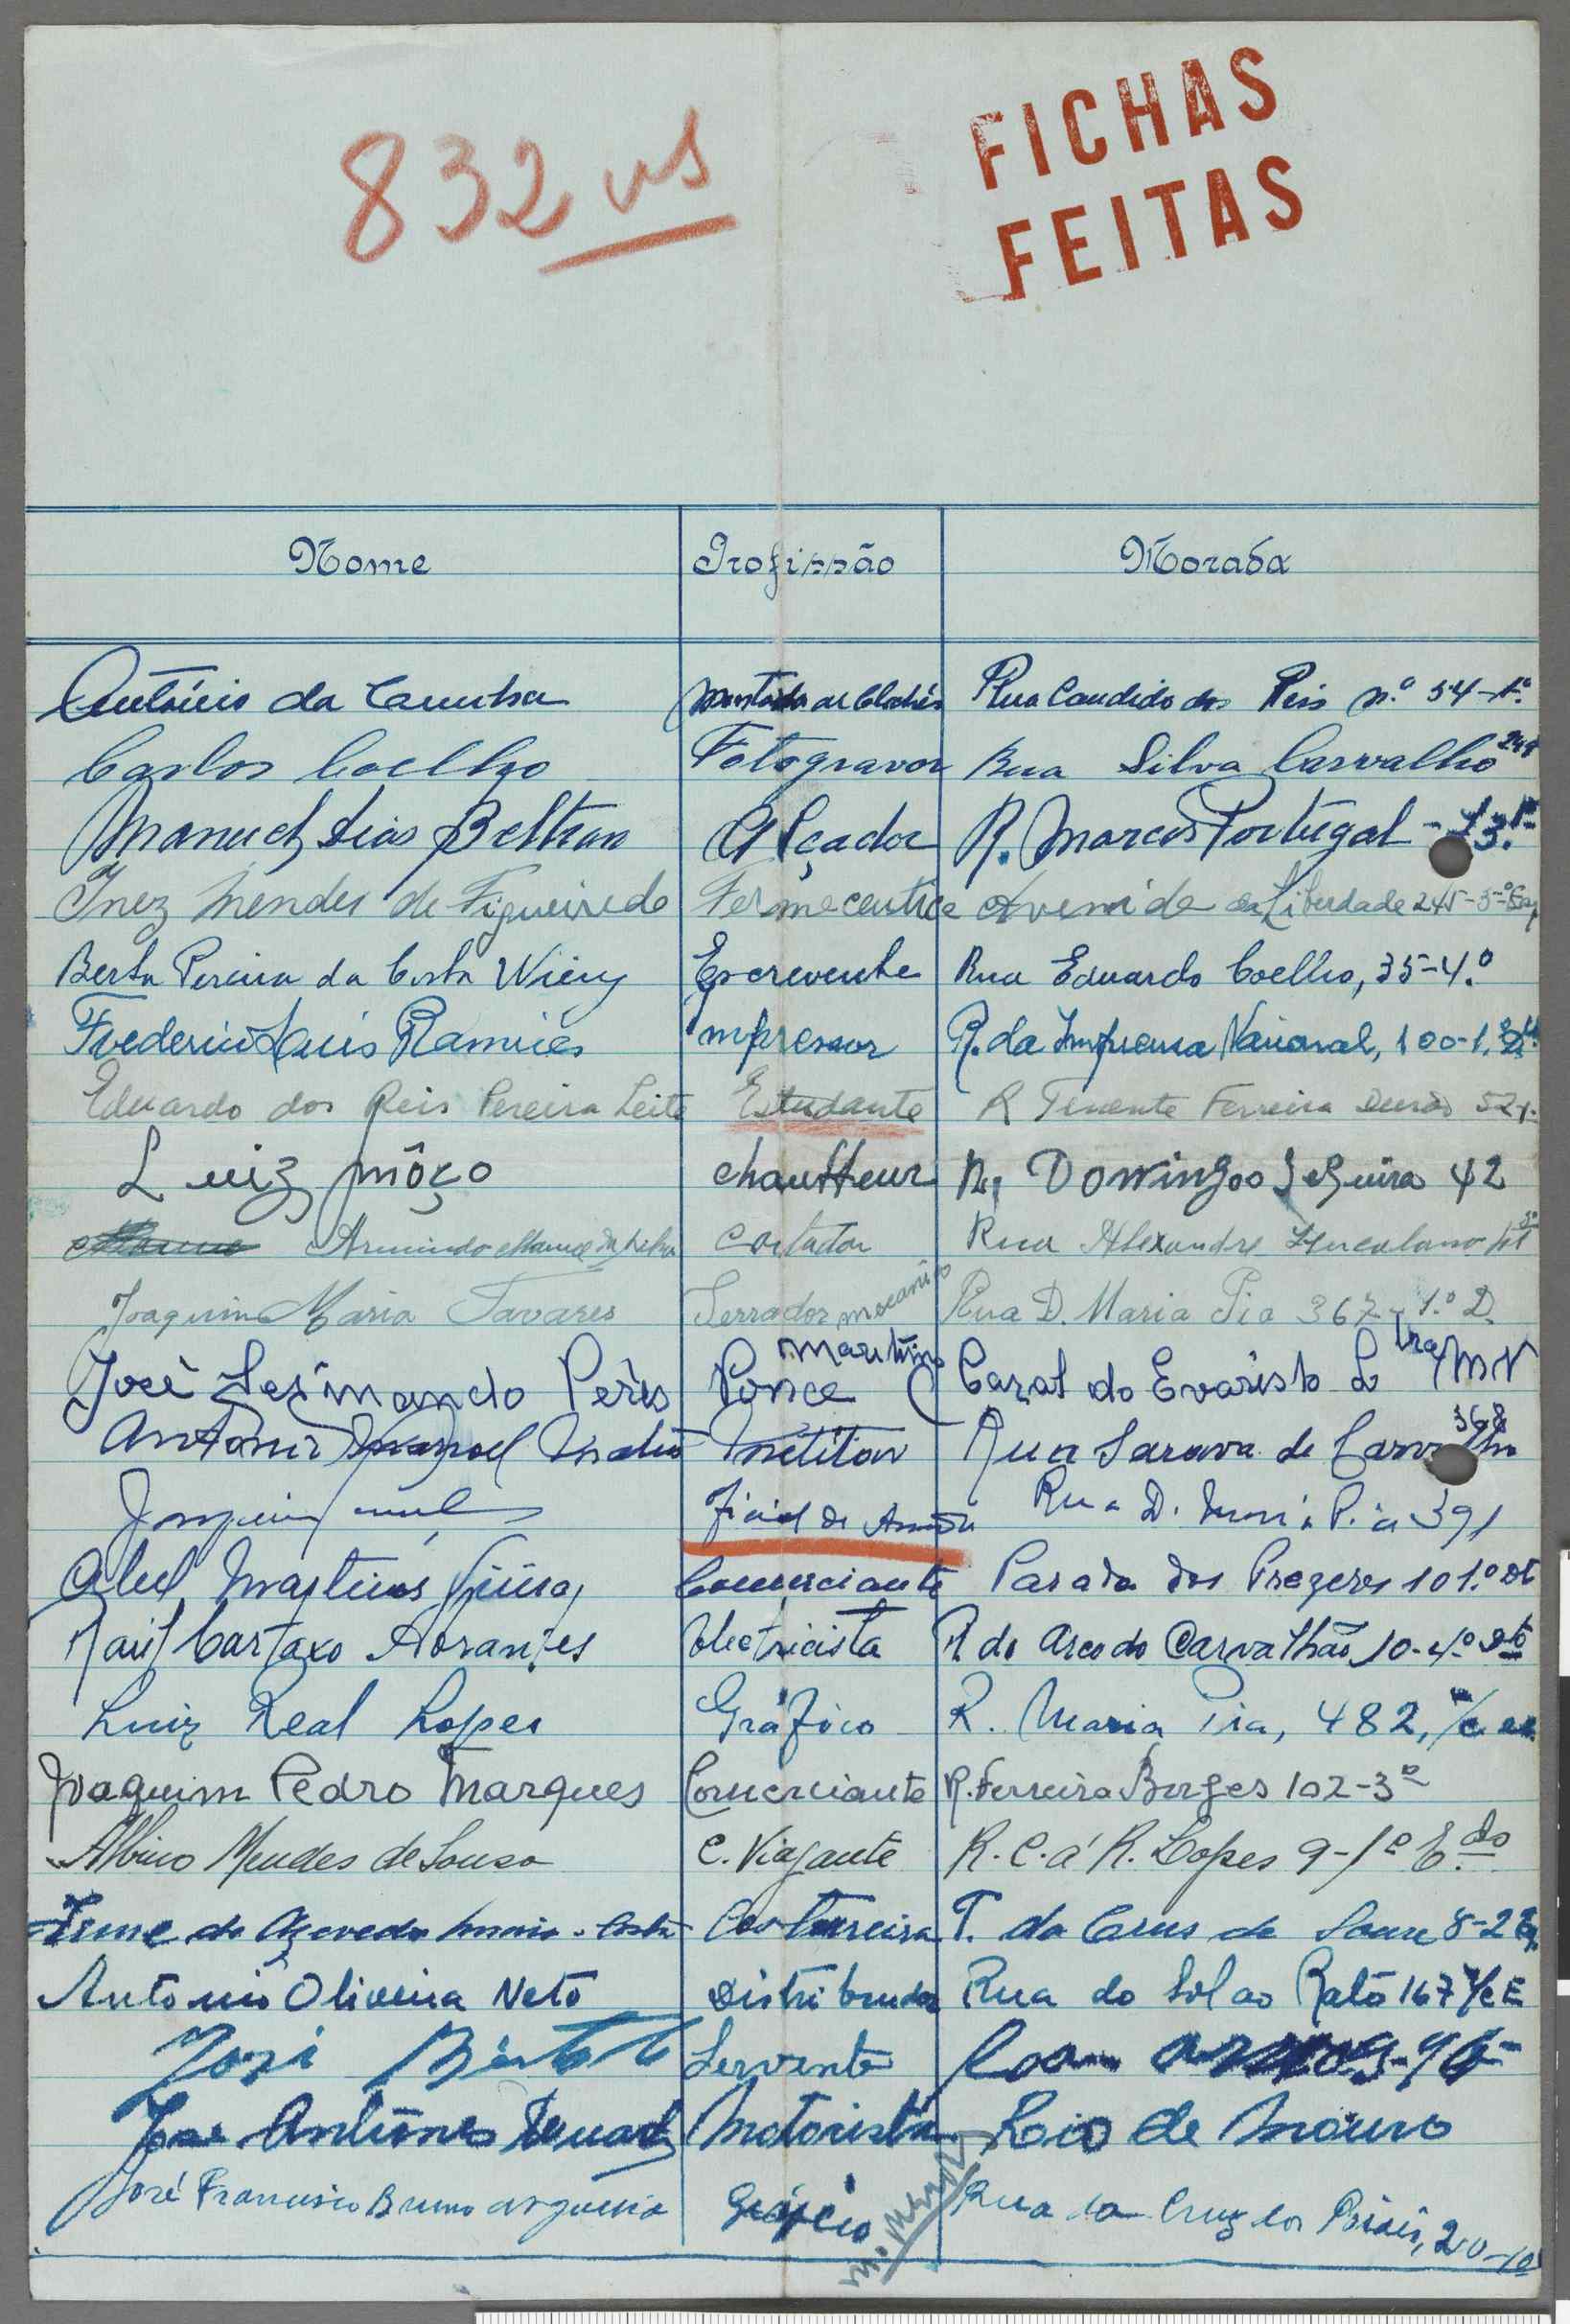 832 vs
FICHAS
FEITAS
Nome Profissão Morada
António da Cunha Montador de Clichés Rua Candido dos Reis n.º 54-1º.
Carlos Coelho Fotogravor Rua Silva Carvalho 244
Manuel Dias Beltran Alçador R. Marcos Portugal - 13.
Inez Mendes de Figueiredo Farmaceutica Avenida da Liberdade 245-3º Esq
Berta Pereira da Costa Escrevente Rua Eduardo Coelho, 35-4.º
Frederico Luís Ramires Impressor R. da Imprensa Nacional, 100-1.
Eduardo dos Reis Pereira Leite Estudante R Tenente Ferreira Durão 52
Luiz Môço chauffeur R. Domingos Sequeira 42
Armindo Manuel da Silva Cortador Rua Alexandre Herculano
Joaquim Maria Tavares Serrador mecanico Rua D. Maria Pia 367-1.º D.
José Lesimando Peres Ponce maritimo Casal do Evaristo Letra M N
António Rua Saraiva de Carvalho 368
Joaquim Rua D. Maria Pia 391
Abel Martins Comerciante Parada dos Prazeres 10 1.º Dt
Raúl Cartaxo Abrantes Electricista R. do Arco do Carvalhão 10-4.º Dto
Luiz Real Lopes Gráfico R. Maria Pia, 482, r/c
Joaquim Pedro Marques Comerciante R. Ferreira Borges 102-3º
Albino Mendes de Sousa C. Viajante R. C. a R. Lopes 9-1º Edo
Irene de Azevedo Costa Costureira T. da Crus de Soure 8-2
António Oliveira Neto Distribuidor Rua do Sol ao Rato 167 r/c E
José Servente
José Antunes Motorista Rio de Mouro
José Francisco Bruno Gráfico Rua da Cruz dos Poiais, 20-1º